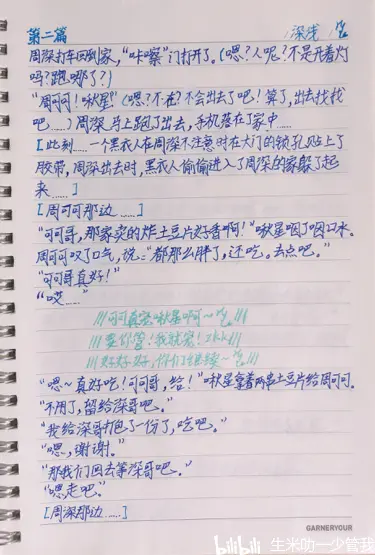 第二篇 深浅
周深打车回到家，“咔嚓”门打开了。(嗯？人呢？不是开着灯
吗？跑哪了？)
“周可可！啾星！”(嗯？不在？不会出去了吧！算了，出去找找
吧……)周深马上跑了出去，手机落在了家中……
[此刻……一个黑衣人在周深不注意时在大门的锁孔贴上了
胶带，周深出去时，黑衣人偷偷进入了周深的家躲了起
来……]
[周可可那边……]
“可可哥，那家卖的炸土豆片好香啊！”啾星咽了咽口水。
周可可叹了口气，说：“都那么胖了，还吃。去点吧。”
“可可哥真好！”
“哎……”
///可可真宠啾星啊～///
///要你管！我就宠！
///好好好，你们继续～///
“嗯～真好吃！可可哥，给！”啾星拿着两串土豆片给周可可。
“不用了，留给深哥吧。”
“我给深哥打包了一份了，吃吧。”
“嗯，谢谢。”
“那我们回去等深哥吧。”
“嗯走吧。”
[周深那边……]
GARNERYOUR
bilibili 生米叻一少管我